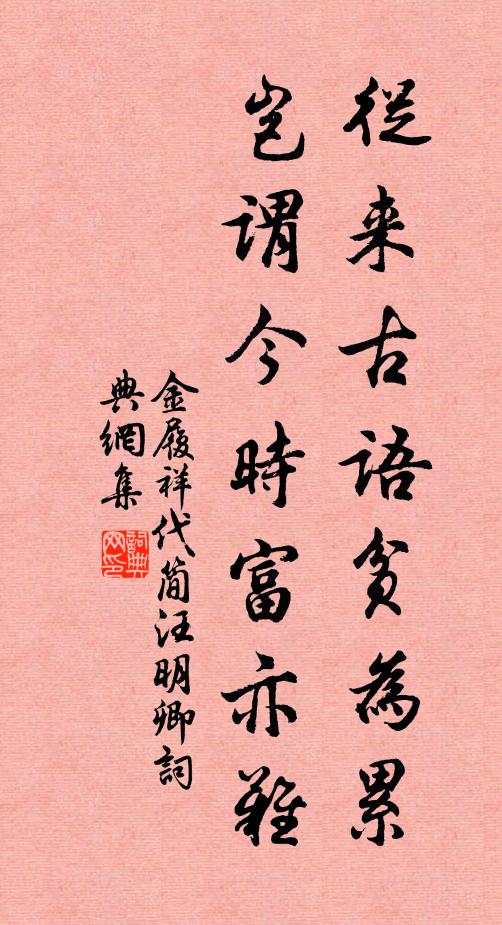 從来古語貧為累
豈謂今時富亦難
金履祥代簡汪明卿詞
典網集
詞典
网印